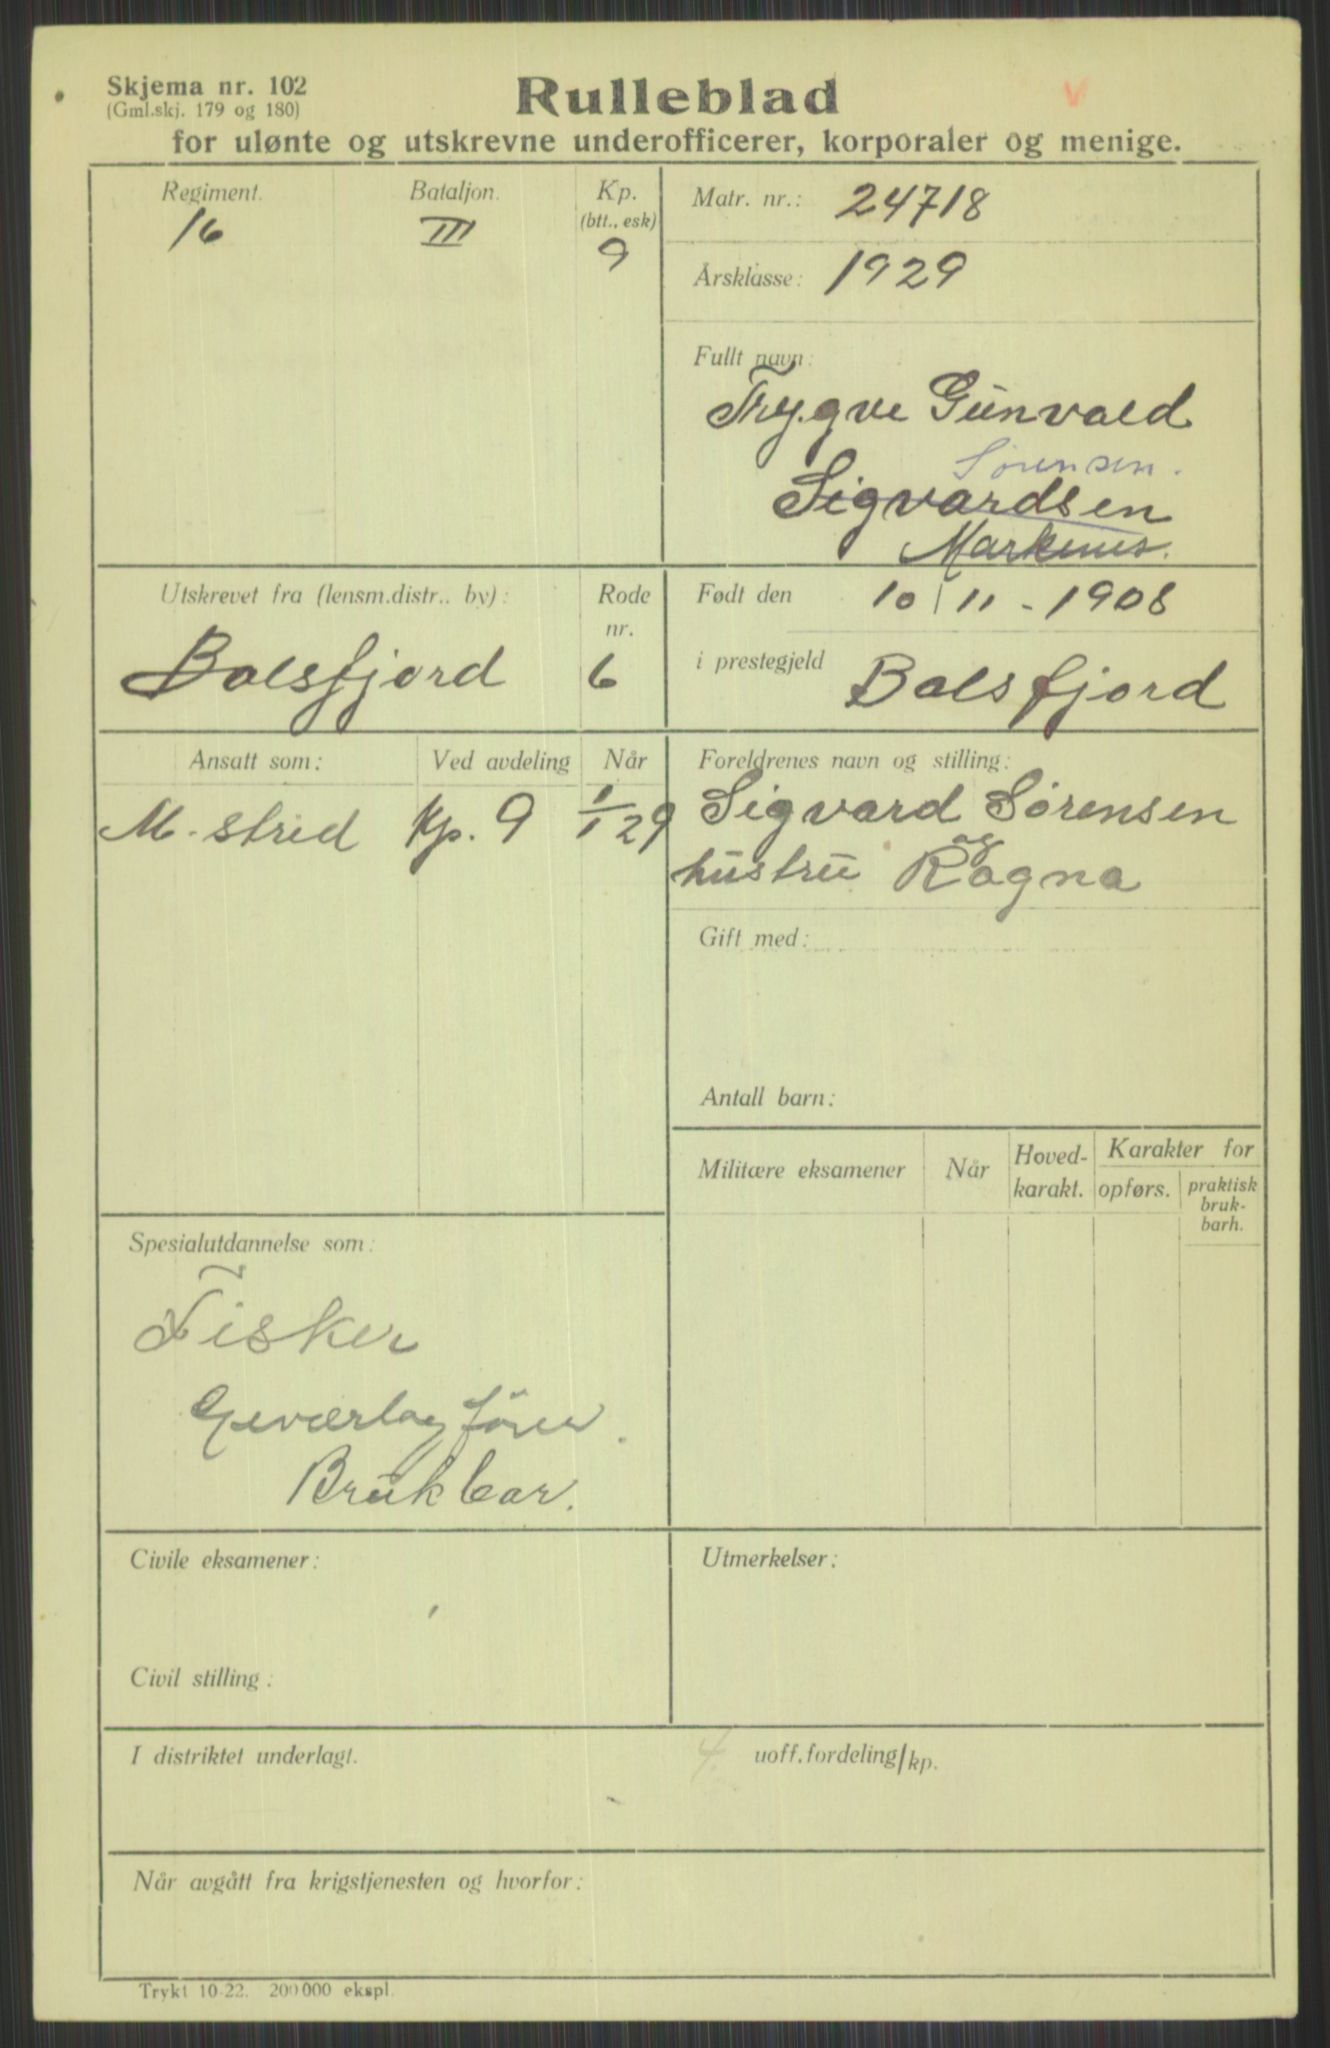 Skjema nr. 102
(Gml.skj. 179 og 180)
Rulleblad
v
for ulønte og utskrevne underofficerer, korporaler og menige.
Regiment.
16
Bataljon.
III
Kp.
(btt., esk)
9
Matr. nr.: 24718
Årsklasse: 1929
Fullt navn:
Trygve Gunvald
Sørensen.
Sigvardsen
Markenes.
Utskrevet fra (lensm.distr.. by):
Balsfjord
Rode
nr.
6
Født den 10/11 - 1908
i prestegjeld Balsfjord
Ansatt som:
M. strid
Ved avdeling
Kp. 9
Når
1/1 29
Foreldrenes navn og stilling:
Sigvard Sørensen
og
hustru Ragna
Gift med:
Antall barn:
Militære eksamener
Når
Hoved-
karakt.
Karakter for
opførs.
praktisk
bruk-
barh.
Spesialutdannelse som:
Fisker
Geværlagfører.
Brukbar.
Civile eksamener:
Civil stilling:
Utmerkelser:
I distriktet underlagt.
4. uoff.fordeling/kp.
Når avgått fra krigstjenesten og hvorfor:
Trykt 10-22. 200 000 ekspl.